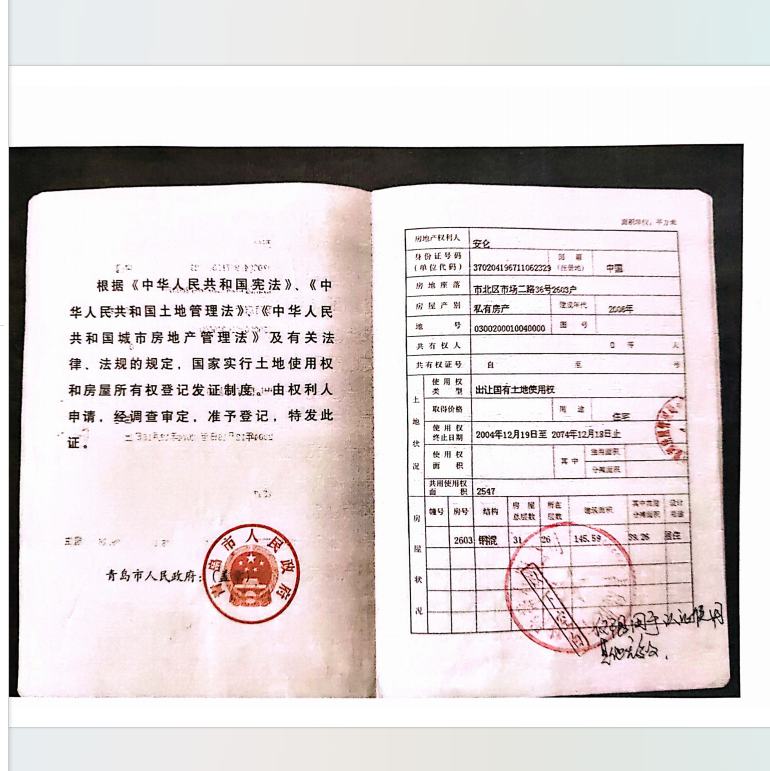 根据《中华人民共和国宪法》、《中
华人民共和国土地管理法》、《中华人民
共和国城市房地产管理法》及有关法
律、法规的规定，国家实行土地使用权
和房屋所有权登记发证制度。由权利人
申请，经调查审定，准予登记，特发此
证。
青岛市人民政府：（盖章）
青岛市人民政府
房地产权利人 安仑
身份证号码（单位代码） 370204196711062329 中国
房地座落 市北区市场二路36号2603户
房屋产别 私有房产 建成年代 2006年
地号 0300200010040000 图号
共有权人 等 人
共有权证号 自 至 号
土地状况
使用权类型 出让国有土地使用权
取得价格 用途 住宅
使用权终止日期 2004年12月19日至 2074年12月18日止
使用权面积 其中
共用使用权面积 2547
房屋状况
幢号 房号 结构 房屋总层数 所在层数 建筑面积 设计用途
2603 钢混 31 26 145.59 38.26 居住
仅限用于认证使用
其他无效.